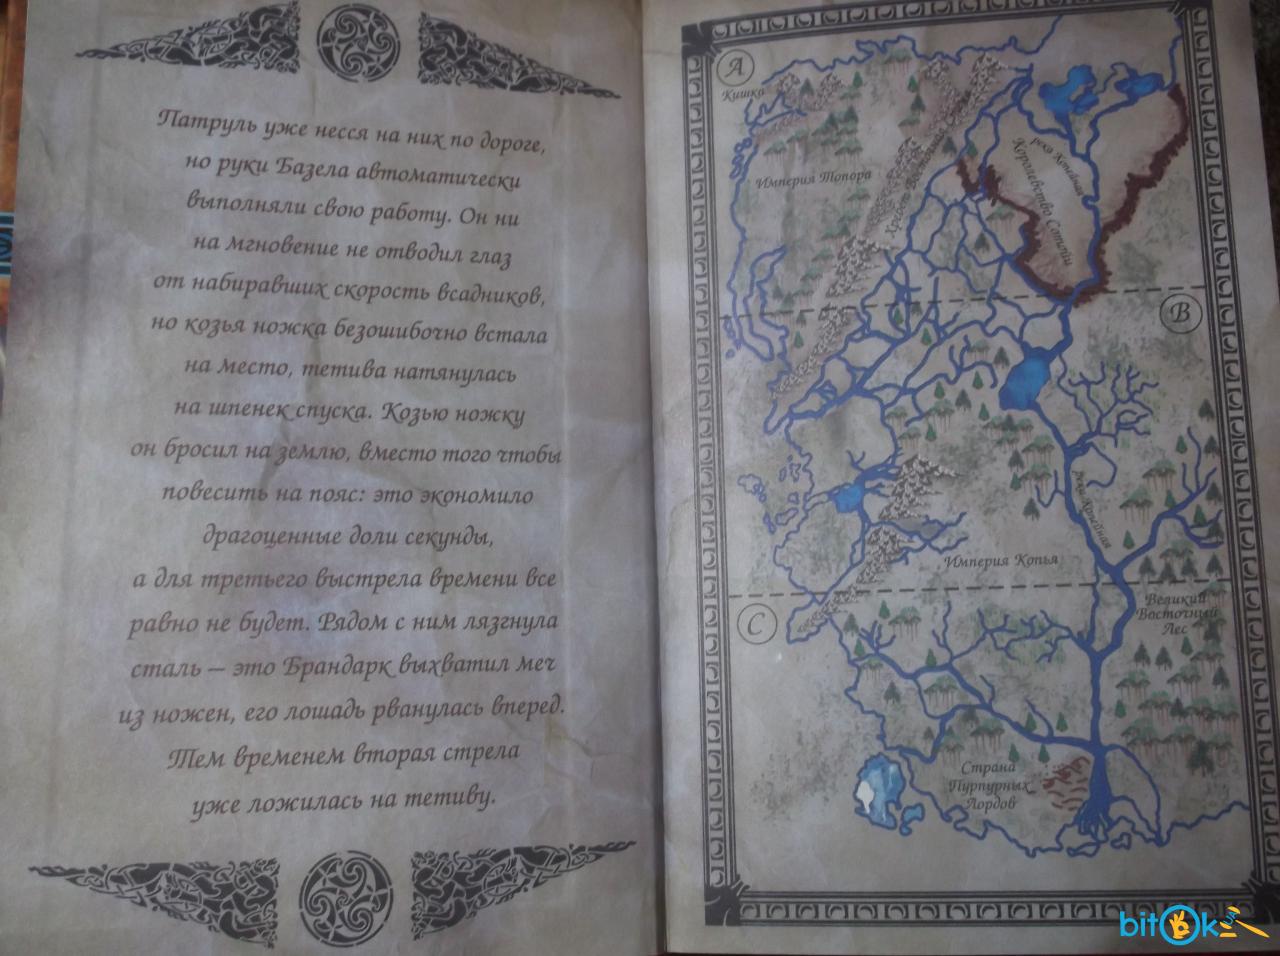 Патруль уже несся на них по дороге,
но руки Базела автоматически
выполняли свою работу. Он ни
на мгновение не отводил глаз
от набиравших скорость всадников,
но козья ножка безошибочно встала
на место, тетива натянулась
на шпенек спуска. Козью ножку
он бросил на землю, вместо того чтобы
повесить на пояс: это экономило
драгоценные доли секунды,
а для третьего выстрела времени все
равно не будет. Рядом с ним лязгнула
сталь – это Брандарк выхватил меч
из ножен, его лошадь рванулась вперед.
Тем временем вторая стрела
уже ложилась на тетиву.
A
Кишка
Империя Топора
Хребет
река Копейная
Королевство Сотойи
B
река Копейная
Империя Копья
C
Великий
Восточный
Лес
Страна
Пурпурных
Лордов
bitok
UA